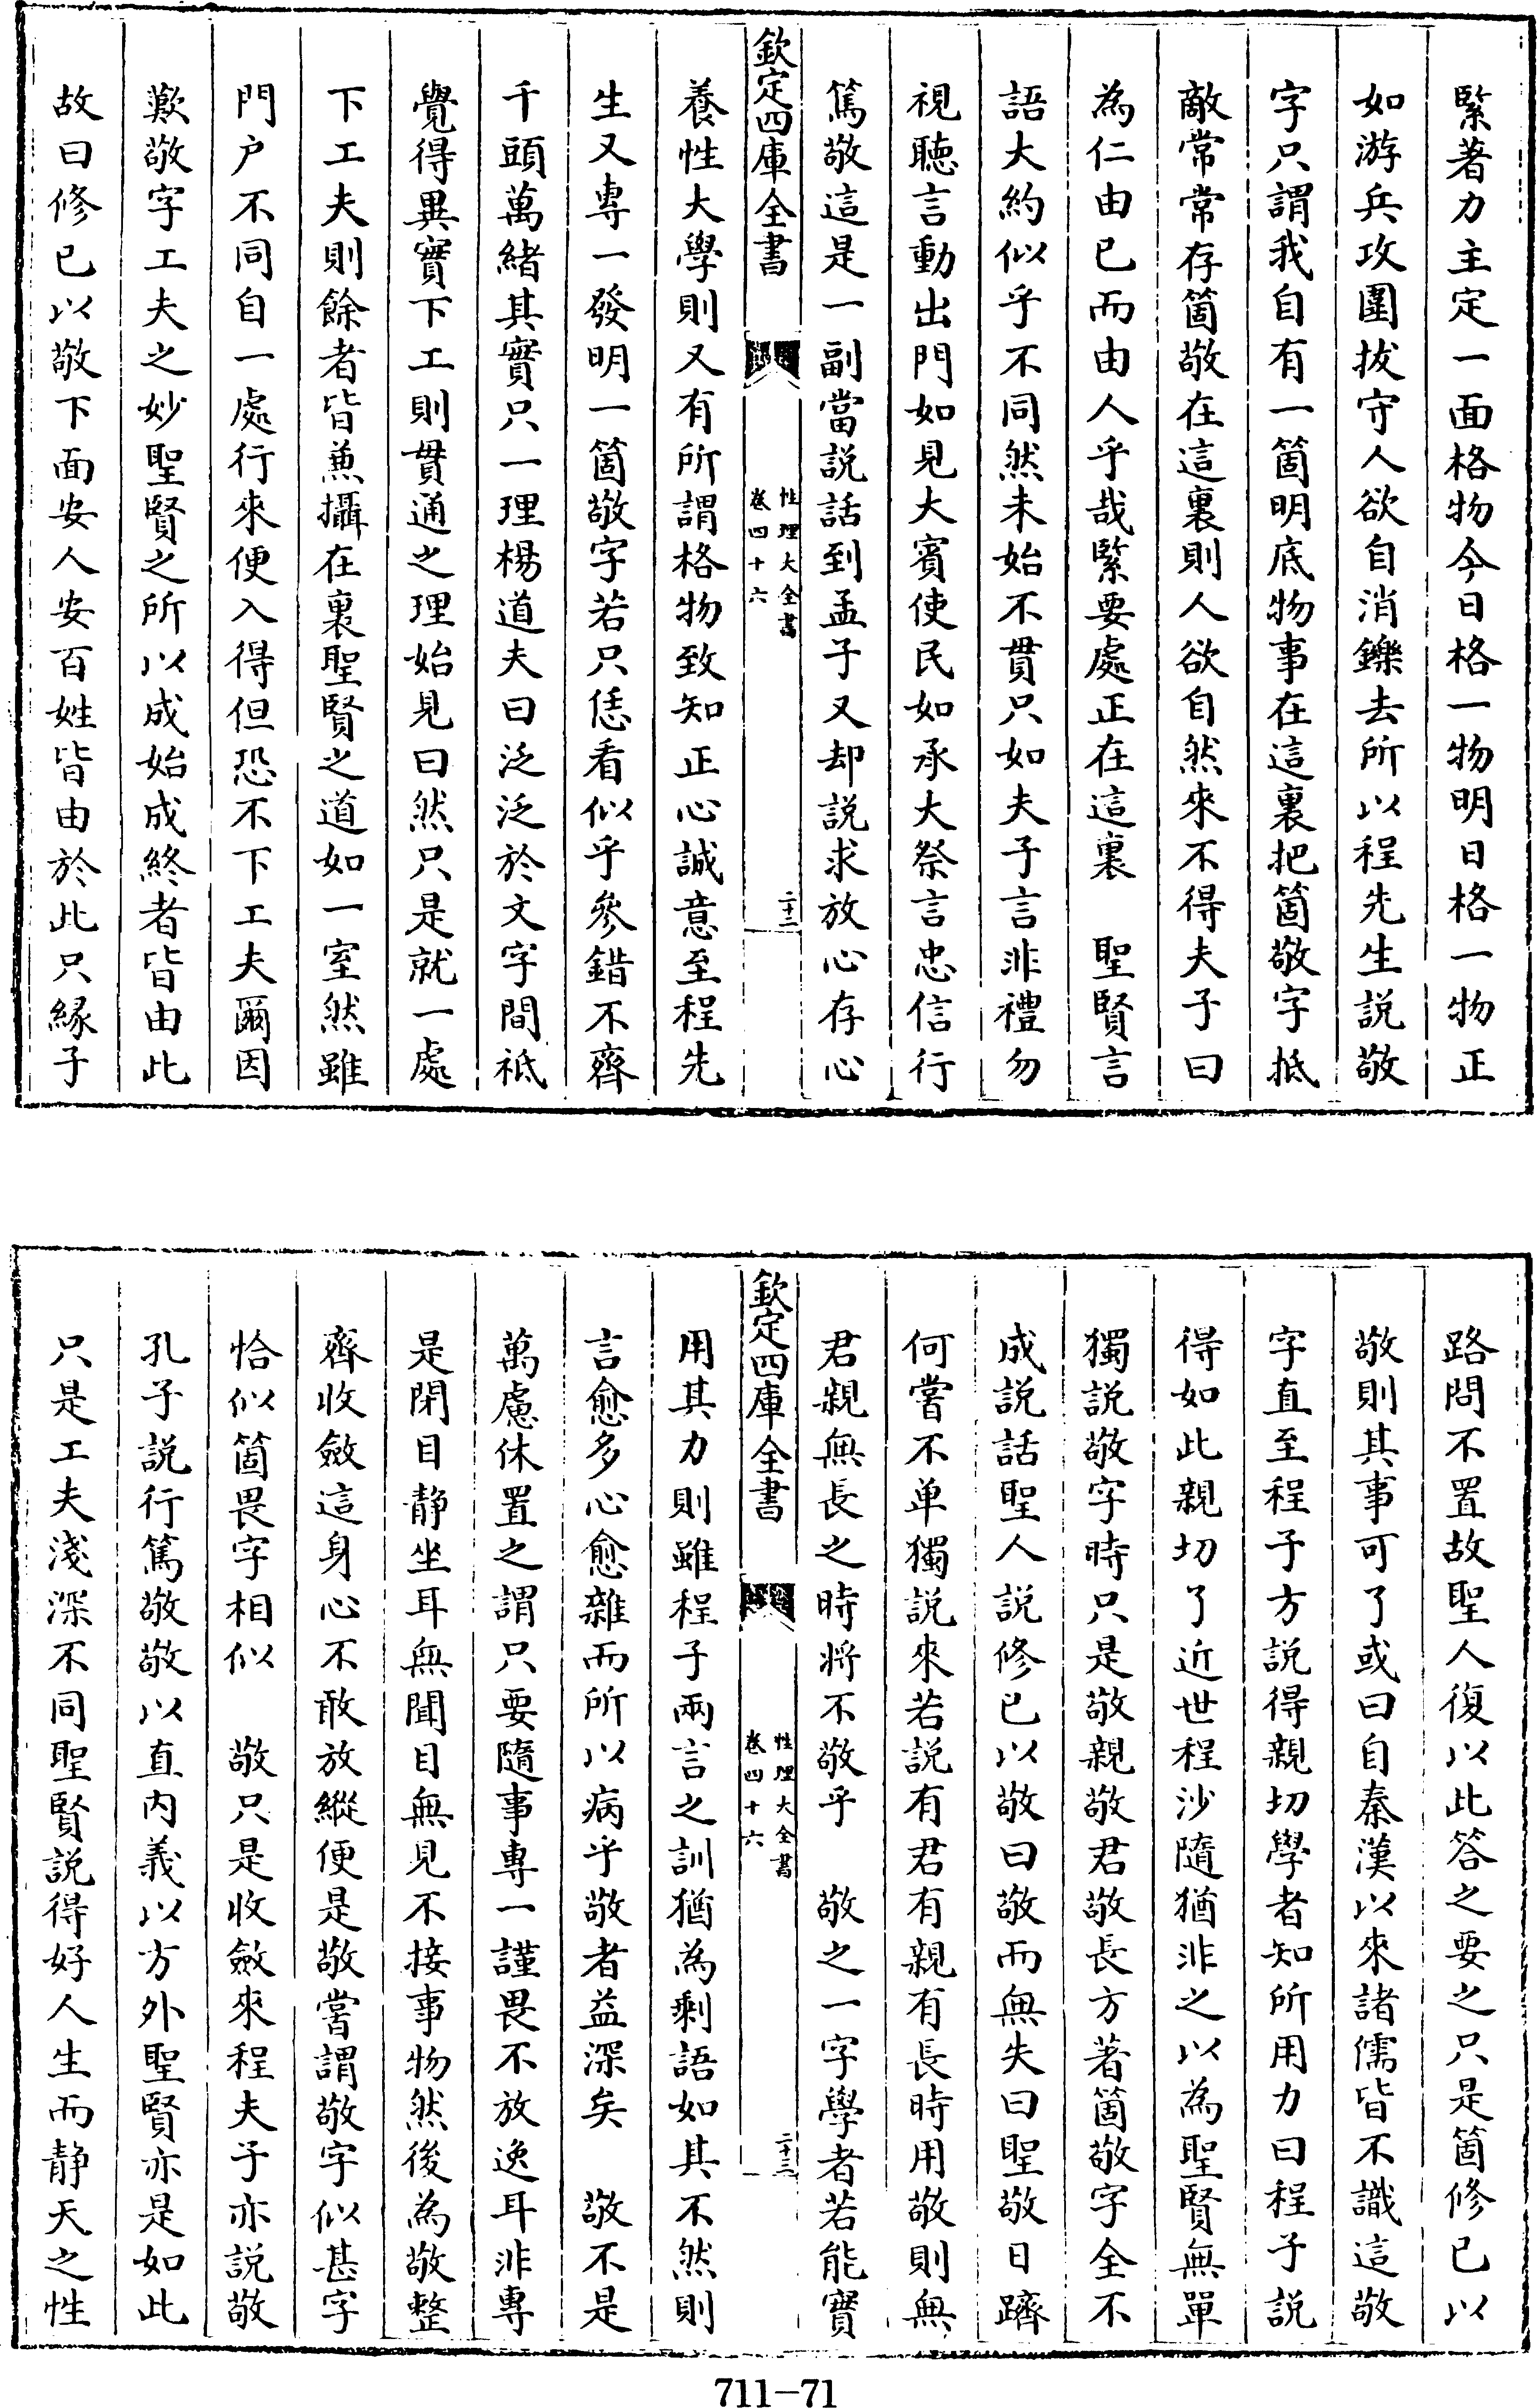 緊著力主定一面格物今日格一物明日格一物正
如游兵攻圍拔守人欲自消鑠去所以程先生説敬
字只謂我自有一箇明底物事在這裏把箇敬字抵
敵常常存箇敬在這裏則人欲自然來不得夫子曰
為仁由己而由人乎哉緊要處正在這裏　聖賢言
語大約似乎不同然未始不貫只如夫子言非禮勿
視聽言動出門如見大賓使民如承大祭言忠信行
篤敬這是一副當説話到孟子又却説求放心存心
欽定四庫全書
性理大全書
卷四十六
二十二
養性大學則又有所謂格物致知正心誠意至程先
生又專一發明一箇敬字若只恁看似乎參錯不齊
千頭萬緒其實只一理楊道夫曰泛泛於文字間祗
覺得異實下工則貫通之理始見曰然只是就一處
下工夫則餘者皆兼攝在裏聖賢之道如一室然雖
門户不同自一處行來便入得但恐不下工夫爾因
歎敬字工夫之妙聖賢之所以成始成終者皆由此
故曰修已以敬下面安人安百姓皆由於此只緣子
路問不置故聖人復以此答之要之只是箇修已以
敬則其事可了或曰自秦漢以來諸儒皆不識這敬
字直至程子方説得親切學者知所用力曰程子説
得如此親切了近世程沙隨猶非之以為聖賢無單
獨説敬字時只是敬親敬君敬長方著箇敬字全不
成説話聖人説修已以敬曰敬而無失曰聖敬日躋
何嘗不单獨説來若説有君有親有長時用敬則無
君親無長之時將不敬乎　敬之一字學者若能實
欽定四庫全書
性理大全書
卷四十六
二十三
用其力則雖程子兩言之訓猶為剩語如其不然則
言愈多心愈雜而所以病乎敬者益深矣　敬不是
萬慮休置之謂只要隨事專一謹畏不放逸耳非專
是閉目静坐耳無聞目無見不接事物然後為敬整
齊收斂這身心不敢放縱便是敬嘗謂敬字似甚字
恰似箇畏字相似　敬只是收斂來程夫子亦説敬
孔子説行篤敬敬以直内義以方外聖賢亦是如此
只是工夫淺深不同聖賢説得好人生而静天之性
711-71